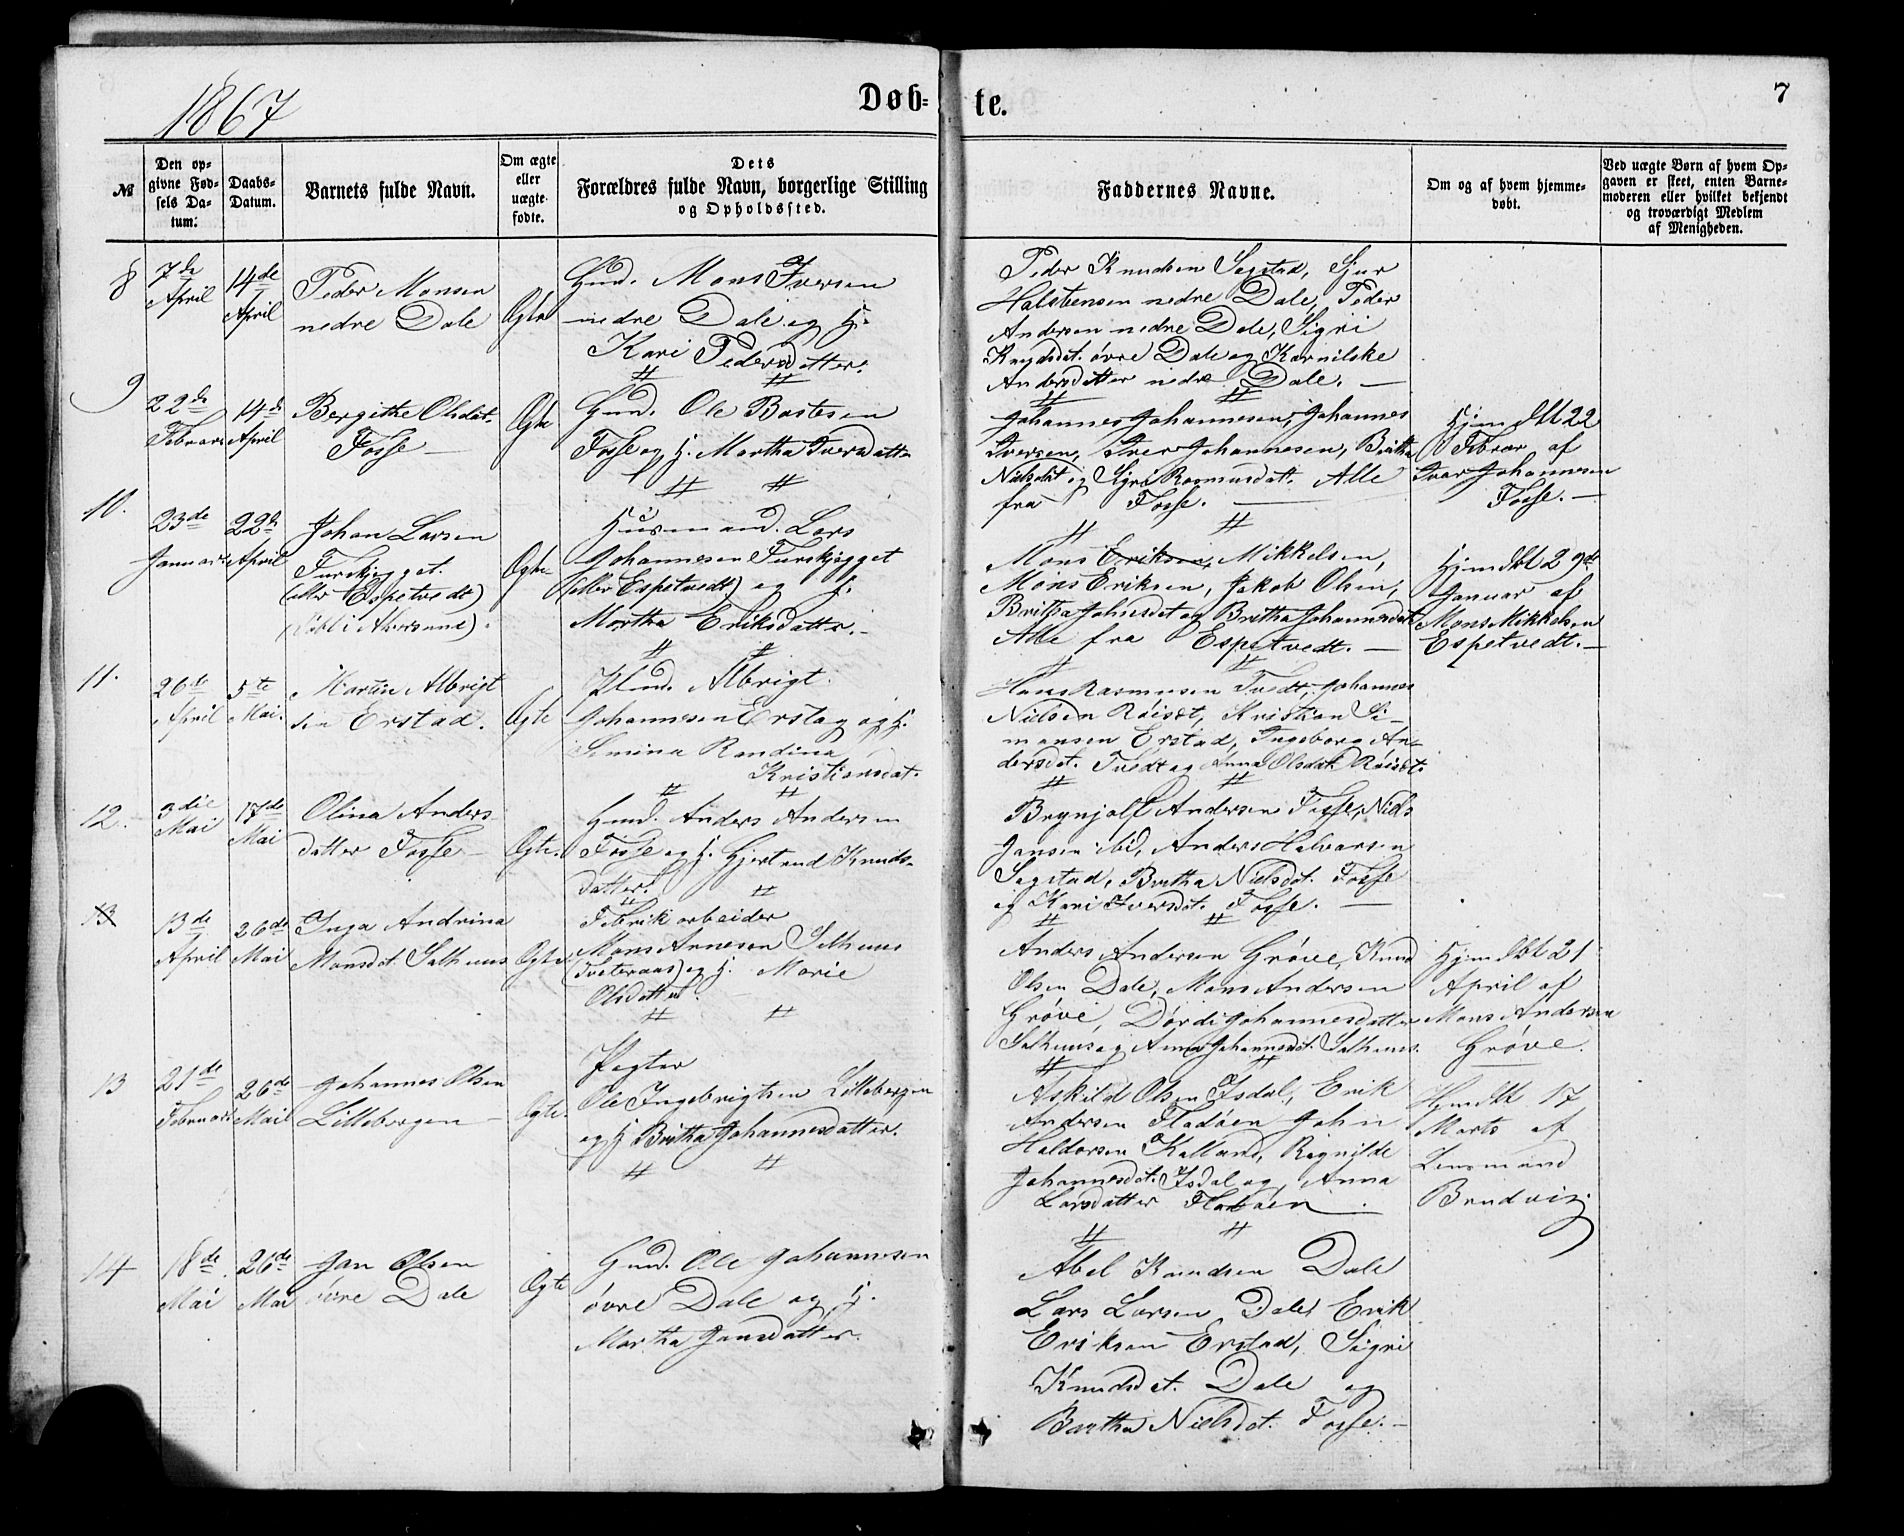 1867
Døb-
te.
7
№
Den op-
givne Fød-
sels Da-
tum.
Daabs-
Datum.
Barnets fulde Navn.
Om ægte
eller
uægte
fødte.
Dets
Forældres fulde Navn, borgerlige Stilling
og Opholdssted.
Faddernes Navne.
Om og af hvem hjemme-
døbt.
Ved uægte Børn af hvem Op-
gaven er skeet, enten Barne-
moderen eller hvilket bekjendt
og troværdigt Medlem
af Menigheden.
8
7de
April
14de
April
Peder Monsen
nedre Dale
Ægte
Gmd. Mons Iversen
nedre Dale og H.
Kari Pedersdatter.
Peder Knudsen Segstad, Sjur
Halstensen nedre Dale, Peder
Andersen nedre Dale, Sigri
Knudsdt. øvre Dale og Karnilske
Andersdatter nedre Dale. —
9
22de
Februar
14de
April
Bergithe Olsdat.
Fosse —
Ægte
Gmd. Ole Bastesen
Fosse og H. Martha Iversdatter
Johannes Johannesen, Johannes
Iversen, Iver Johannesen, Birtha
Nielsdt og Sigri Rasmusdat. Alle
fra Fosse. —
Hjemdbt 22
Februar af
Ivar Johannesen
Fosse. —
10.
23de
Januar
22de
April
Johan Larsen
Furskjegget.
(eller Espetvedt)
(Døbt i Alversund).
Ægte
Husmand. Lars
Johannesen Furskjegget
(eller Espetvedt) og H.
Martha Eriksdatter. —
Mons Eriksen, Mikkelsen,
Mons Eriksen, Jakob Olsen,
Britha Johnsdat og Britha Johannesdat.
Alle fra Espetvedt. —
Hjemdbt 29de
Januar af
Mons Mikkelsen
Espetvedt. —
11.
26de
April
5te
Mai.
Martin Albrigt
sen Erstad.
Ægte
Plmd. Albrigt
Johannesen Erstag og H.
Semina Randina
Kristiansdat.
Hans Rasmusen Tvedt, Johannes
Nielsen Røisdt, Kristian Si-
monsen Erstad, Ingeborg An-
dersdt. Tvedt og Anna Olsdat. Røisdt.
12.
3die
Mai
17de
Mai
Olina Anders
datter Fosse —
Ægte.
Gmd. Anders Andersen
Fosse og H. Gjertrud Knuds-
datter.
Brynjolf Andersen Fosse, Niels
Jansen ibid, Anders Halvorsen
Segstad, Britha Nielsdt. Fosse
og Kari Iversdt. Fosse. —
13
13de
April
26de
Mai
Inga Andrina
Monsdt. Salhuus
Ægte
Fabrikarbeider
Mons Arnesen Salhuus
(Tveteraas) og H. Marie
Olsdatter.
Anders Andersen Grøve, Knud
Olsen Dale, Mons Andersen
Grøve, Dordi Johannesdatter
Salhuus og Anna Johannesdt. Salhuus.
Hjemdbt 21
April af
Mons Andersen
Grøve.
13
21de
Februar
26de
Mai
Johannes Olsen
Lillebergen —
Ægte.
Pagter
Ole Ingebrigtsen Lillebergen
og H Britha Johannesdatter.
Askild Olsen Isdal, Erik
Andersen Fladøen John
Haldorsen Kalland, Ragnilde
Johannesdt. Isdal og Anna
Larsdatter Fladøen.
Hjemdbt 17
Marts af
Lensmand
Brudvig.
14
18de
Mai
26de
Mai
Jan Olsen
øvre Dale
Ægte
Gmd. Ole Johannesen
øvre Dale og H.
Martha Jansdatter.
Abel Knudsen Dale
Lars Larsen Dale, Erik
Eriksen Erstad, Sigri
Knudsdt. Dale og
Bartha Nielsdt. Fosse. —